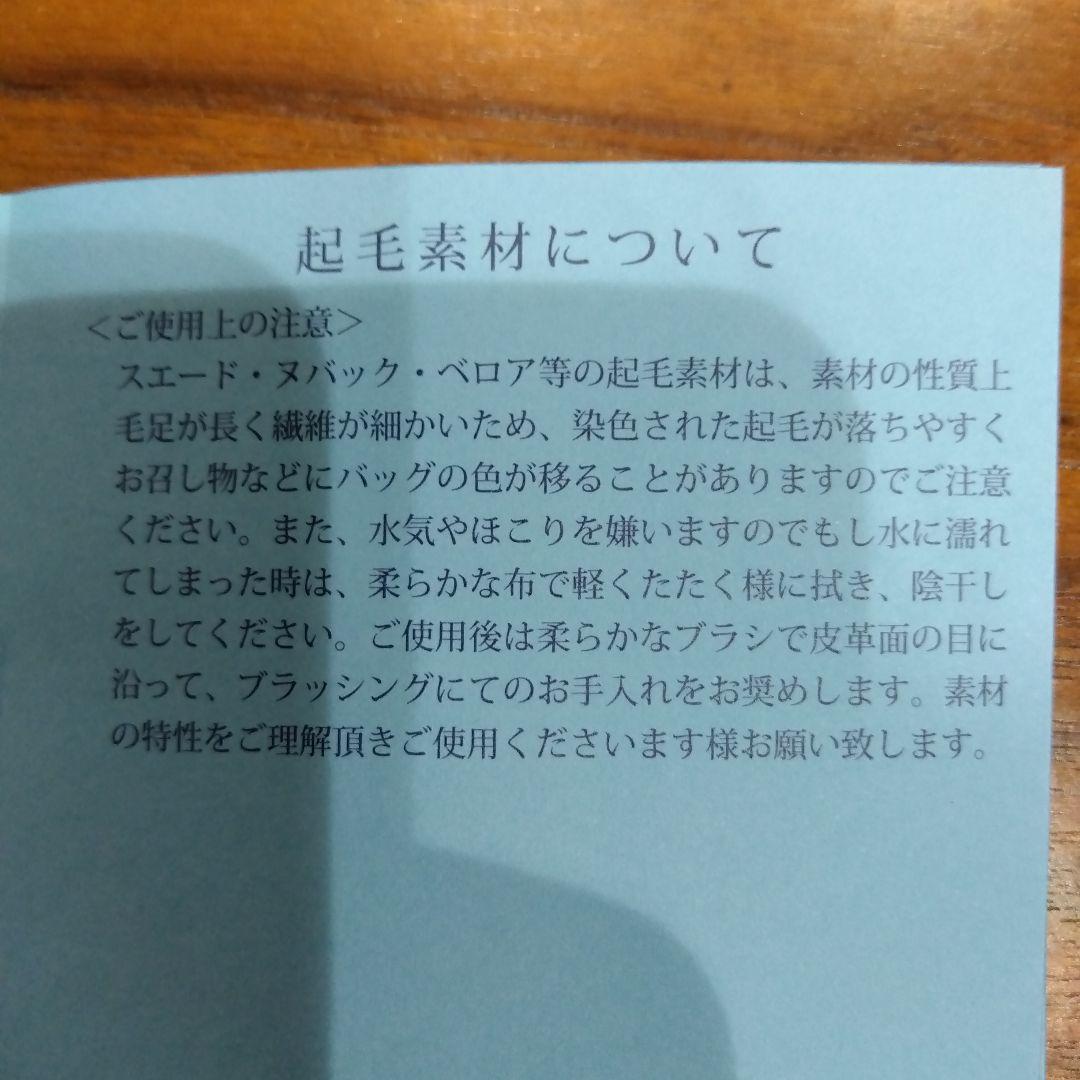 起毛素材について
＜ご使用上の注意＞
スエード・ヌバック・ベロア等の起毛素材は、素材の性質上
毛足が長く繊維が細かいため、染色された起毛が落ちやすく
お召し物などにバッグの色が移ることがありますのでご注意
ください。また、水気やほこりを嫌いますのでもし水に濡れ
てしまった時は、柔らかな布で軽くたたく様に拭き、陰干し
をしてください。ご使用後は柔らかなブラシで皮革面の目に
沿って、ブラッシングにてのお手入れをお奨めします。素材
の特性をご理解頂きご使用くださいます様お願い致します。